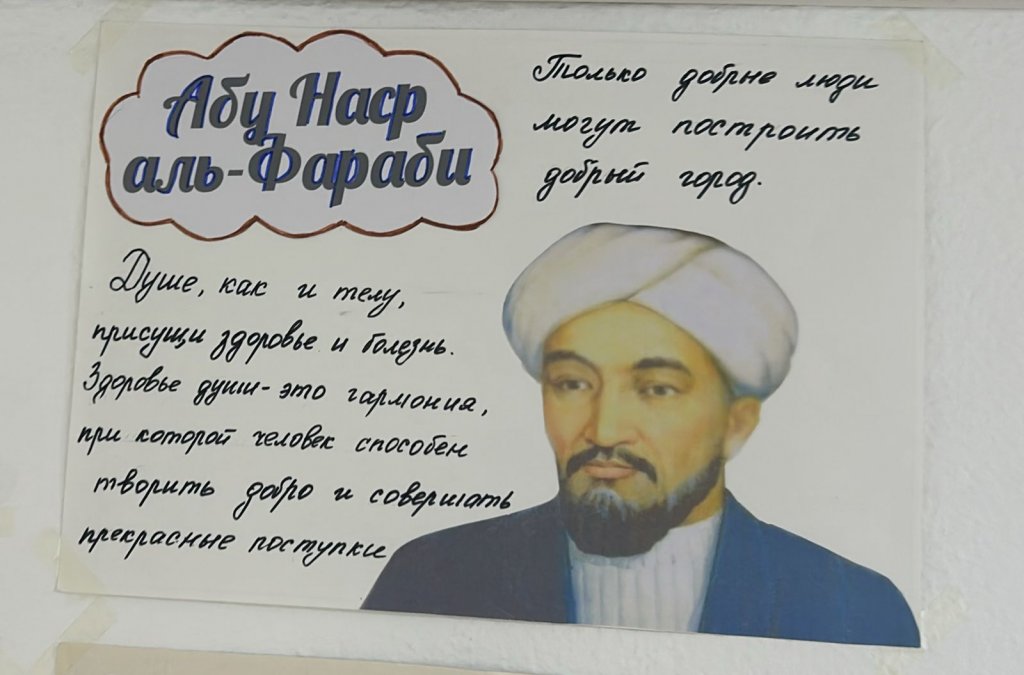 Абу Наср
аль-Фараби
Только добрые люди
могут построить
добрый город.
Душе, как и телу,
присущи здоровье и болезнь.
Здоровье души - это гармония,
при которой человек способен
творить добро и совершать
прекрасные поступки